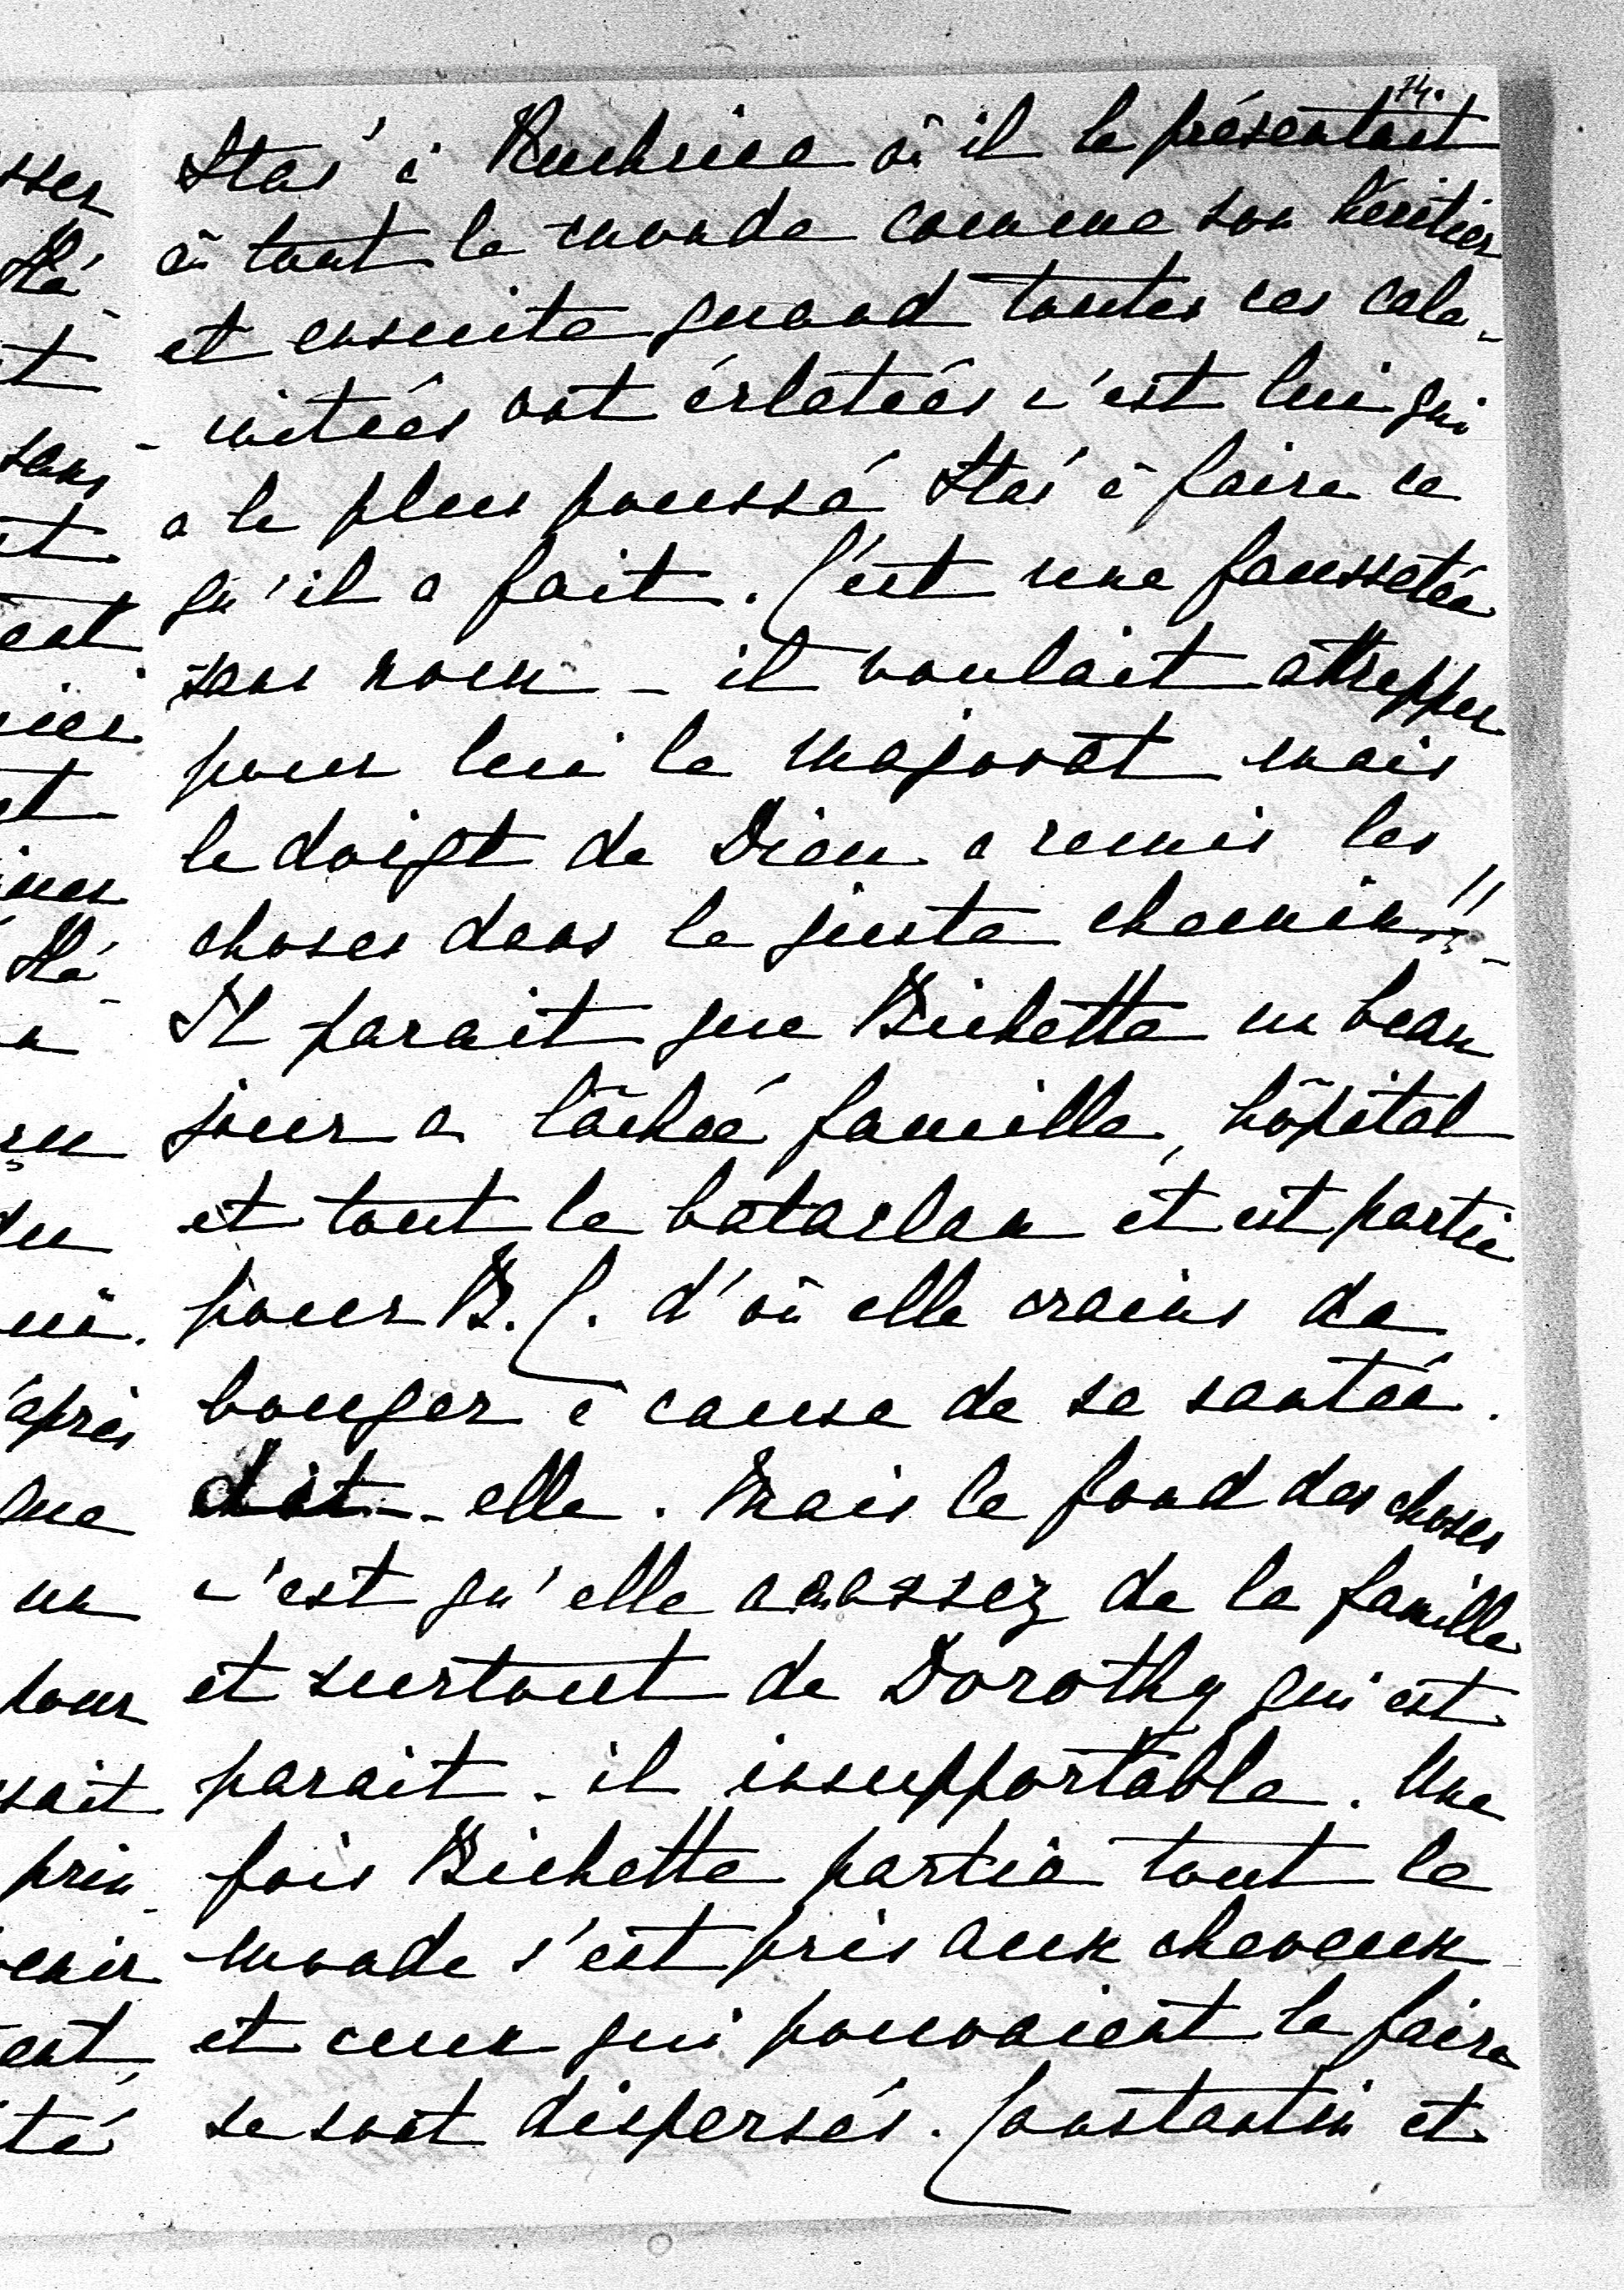 74.
Staś à où il le présentait
à tout le monde comme son héritier
et ensuite quand toutes ces cala-
-mitées ont éclatées c'est lui qui
a le plus poussé Staś à faire ce
qu'il a fait. C'est une faussetée
sans nom - il voulait attrapper
pour lui le majorat mais
le doigt de Dieu a remis les
choses dans le juste chemin!! -
Il parait que Bichette un beau
jour a lâchée famille, hôpital
et tout le bataclan et est partie
pour B. C. d'où elle crains de
bouger à cause de sa santée.
dit-elle. Mais le fond des choses
c'est qu'elle a assez de la famille
et surtout de Dorothy qui est
parait-il insupportable. Une
fois Bichette partie tout le
monde s'est pris aux cheveux
et ceux qui pouvaient le faire
se sont dispersés. Constantin et